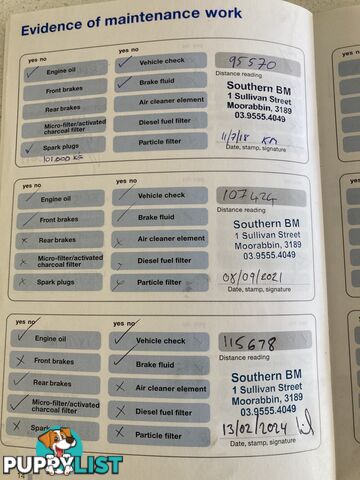 Evidence of maintenance work
yes no
yes no
Engine oil
Vehicle check
95570
Distance reading
Front brakes
Brake fluid
Southern BM
1 Sullivan Street
Moorabbin, 3189
03.9555.4049
Rear brakes
Air cleaner element
Micro-filter/activated
charcoal filter
Diesel fuel filter
Spark plugs
Particle filter
11/7/18
Date, stamp, signature
101,000 KS
yes no
yes no
Engine oil
Vehicle check
107424
Distance reading
Front brakes
Brake fluid
Southern BM
1 Sullivan Street
Moorabbin, 3189
03.9555.4049
Rear brakes
Air cleaner element
Micro-filter/activated
charcoal filter
Diesel fuel filter
Spark plugs
Particle filter
08/09/2021
Date, stamp, signature
yes no
yes no
Engine oil
Vehicle check
115678
Distance reading
Front brakes
Brake fluid
Southern BM
1 Sullivan Street
Moorabbin, 3189
03.9555.4049
Rear brakes
Air cleaner element
Micro-filter/activated
charcoal filter
Diesel fuel filter
Spark
Particle filter
13/02/2024
Date, stamp, signature
14
PUPPYLIST